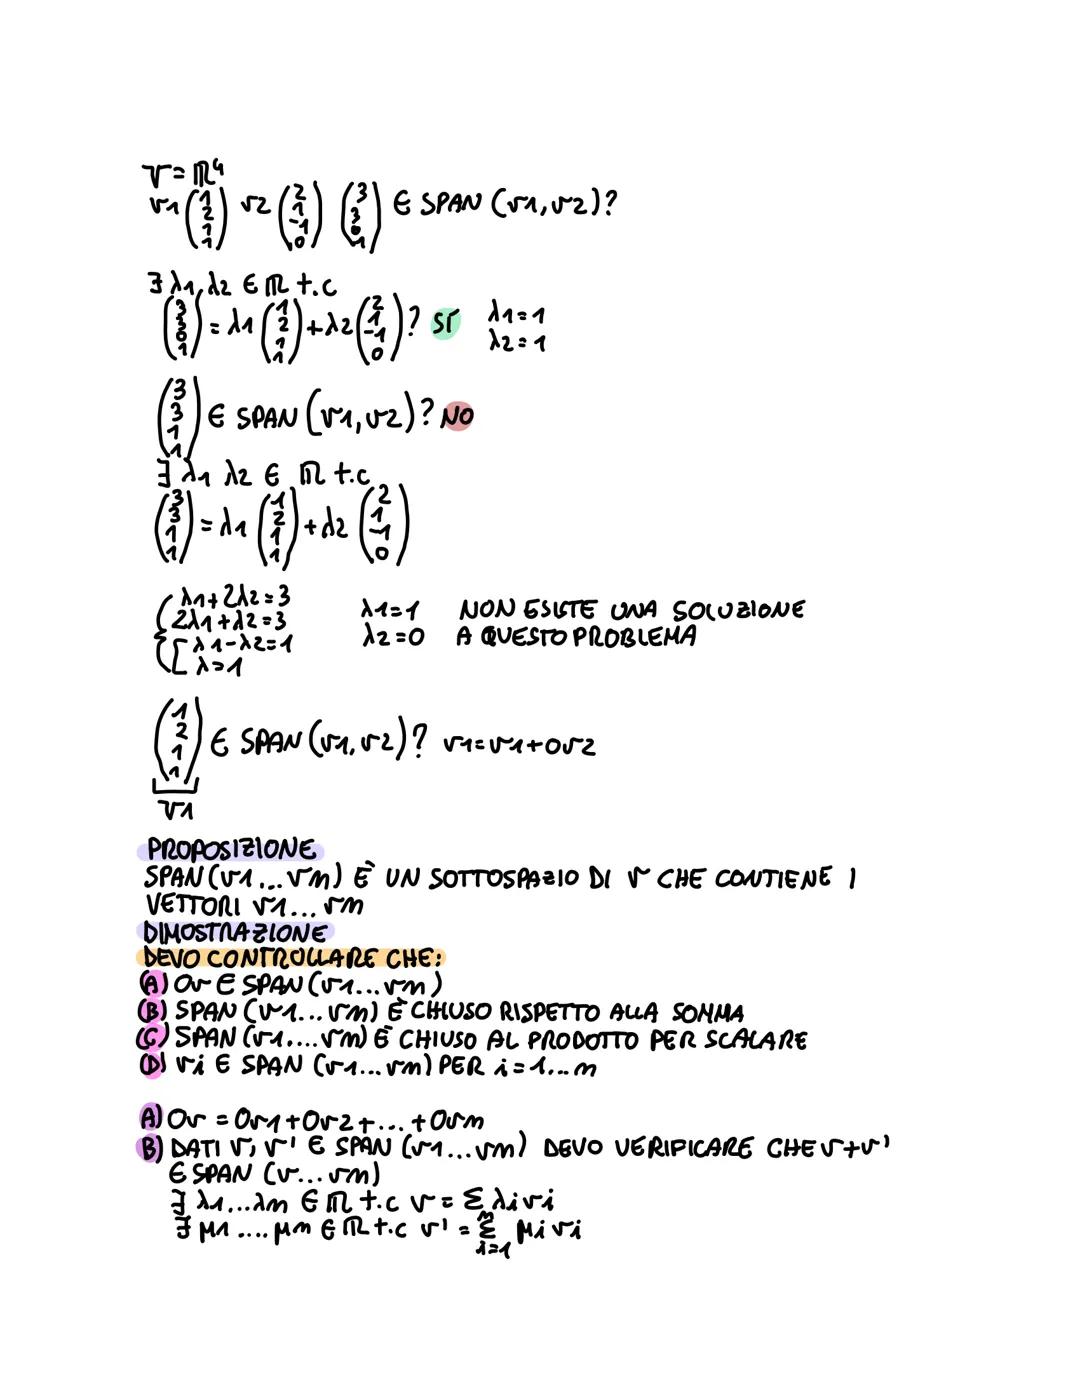 V = ℝ⁴
v1 (1 2 1 1) v2 (2 1 -1 0) (3 3 0 1) ∈ SPAN (v1, v2)?
∃ λ1, λ2 ∈ ℝ t.c
(3 3 0 1) = λ1 (1 2 1 1) + λ2 (2 1 -1 0)? SÌ λ1 = 1
λ2 = 1
(3 3 1 1) ∈ SPAN (v1, v2)? NO
∃ λ1 λ2 ∈ ℝ t.c
(3 3 1 1) = λ1 (1 2 1 1) + λ2 (2 1 -1 0)
λ1 + 2λ2 = 3
2λ1 + λ2 = 3 λ1 = 1 NON ESISTE UNA SOLUZIONE
λ1 - λ2 = 1 λ2 = 0 A QUESTO PROBLEMA
λ = 1
(1 2 1 1) ∈ SPAN (v1, v2)? v1 = v1 + 0v2
v1
PROPOSIZIONE
SPAN (v1 ... vm) È UN SOTTOSPAZIO DI V CHE CONTIENE I
VETTORI v1 ... vm
DIMOSTRAZIONE
DEVO CONTROLLARE CHE:
A) 0v ∈ SPAN (v1 ... vm)
B) SPAN (v1 ... vm) È CHIUSO RISPETTO ALLA SOMMA
C) SPAN (v1 .... vm) È CHIUSO AL PRODOTTO PER SCALARE
D) vi ∈ SPAN (v1 ... vm) PER i = 1 ... n
A) 0v = 0v1 + 0v2 + ... + 0vm
B) DATI v, v' ∈ SPAN (v1 ... vm) DEVO VERIFICARE CHE v + v'
∈ SPAN (v ... vm)
∃ λ1 ... λm ∈ ℝ t.c v = Σ λi vi
∃ μ1 .... μm ∈ ℝ t.c v' = Σ^n_{i=1} μi vi